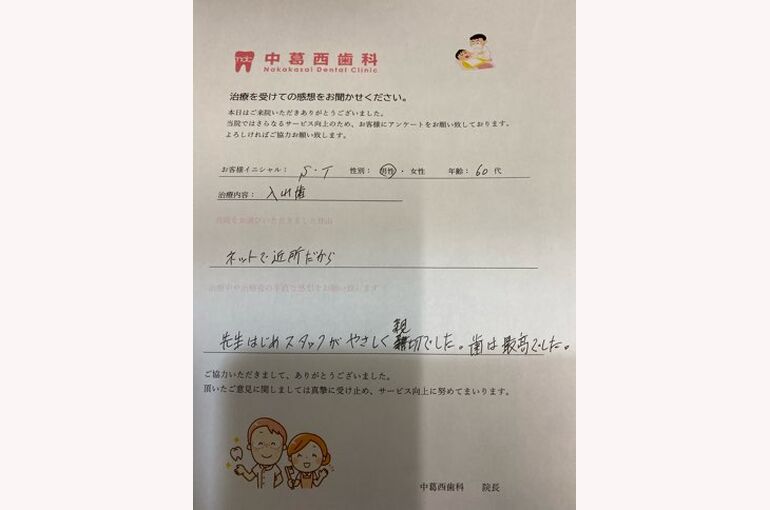 ndc 中葛西歯科
Nakakasai Dental Clinic
治療を受けての感想をお聞かせください。
本日はご来院いただきありがとうございました。
当院ではさらなるサービス向上のため、お客様にアンケートをお願い致しております。
よろしければご協力お願い致します。
お客様イニシャル： S・T 性別： 男性 ・ 女性 年齢： 60 代
治療内容： 入れ歯
当院をお選びいただきました理由
ネットで近所だから
治療中や治療後の率直な感想をお願い致します
先生はじめスタッフがやさしく親切でした。歯は最高でした。
ご協力いただきまして、ありがとうございました。
頂いたご意見に関しましては真摯に受け止め、サービス向上に努めてまいります。
中葛西歯科 院長